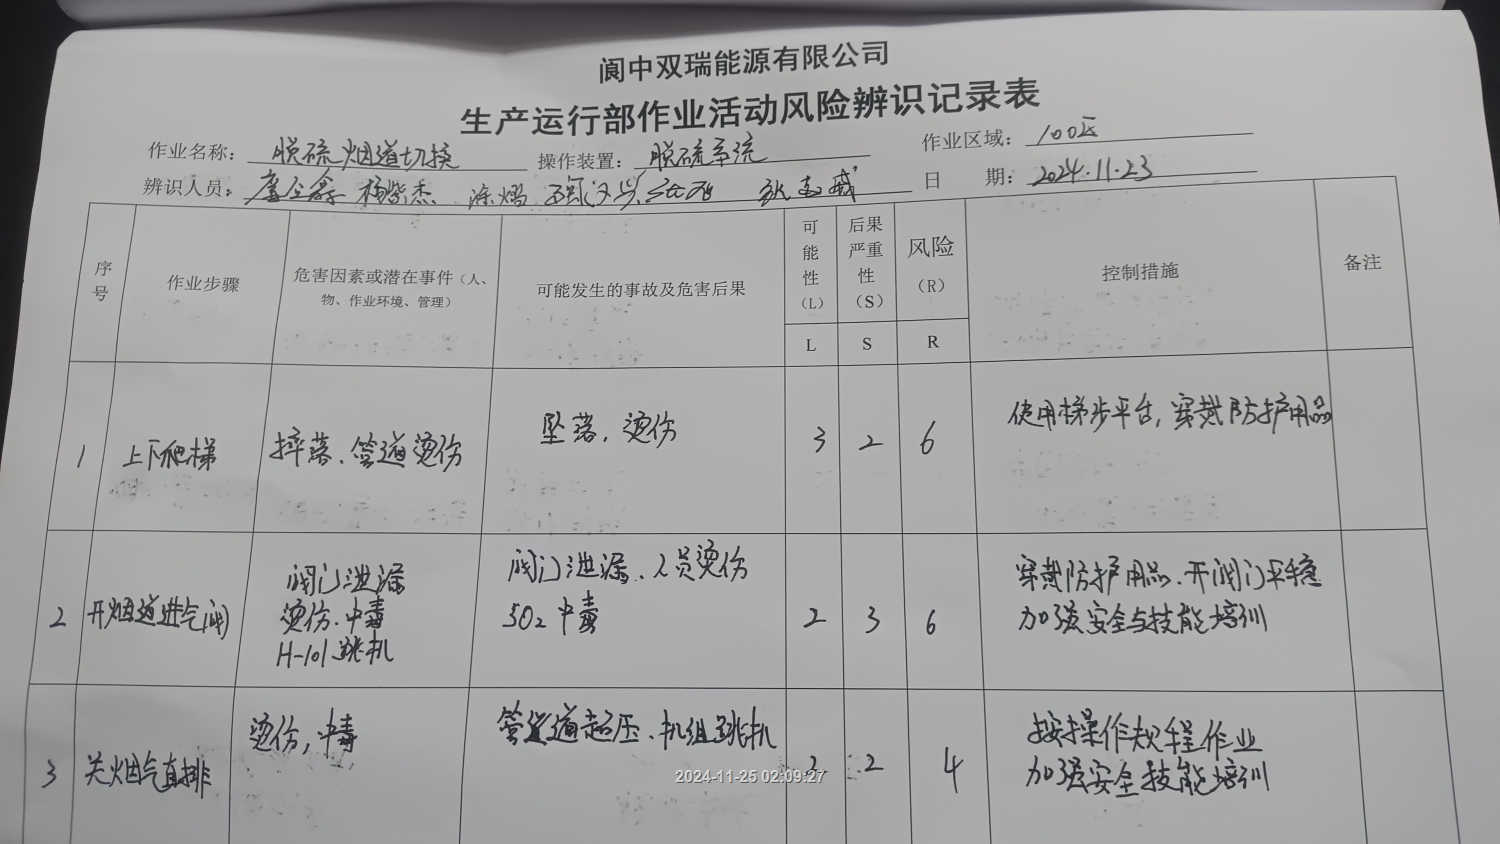 阆中双瑞能源有限公司
生产运行部作业活动风险辨识记录表
作业名称： 脱硫烟道切换 操作装置： 脱硫系统 作业区域： 100区
辨识人员： 杨紫杰 涂熠 日 期： 2024.11.23
序号 作业步骤 危害因素或潜在事件（人、物、作业环境、管理） 可能发生的事故及危害后果 可能性（L） 后果严重性（S） 风险（R） 控制措施 备注
L S R
1 上下爬梯 摔落、管道烫伤 坠落，烫伤 3 2 6 使用梯步平台，穿戴防护用品
2 开烟道进气阀 阀门泄漏 烫伤、中毒 H-101跳机 阀门泄漏、人员烫伤 SO2中毒 2 3 6 穿戴防护用品、开阀门平稳 加强安全与技能培训
3 关烟气直排 烫伤，中毒 管道超压、机组跳机 2 2 4 按操作规程作业 加强安全技能培训
2024-11-25 02:09:27